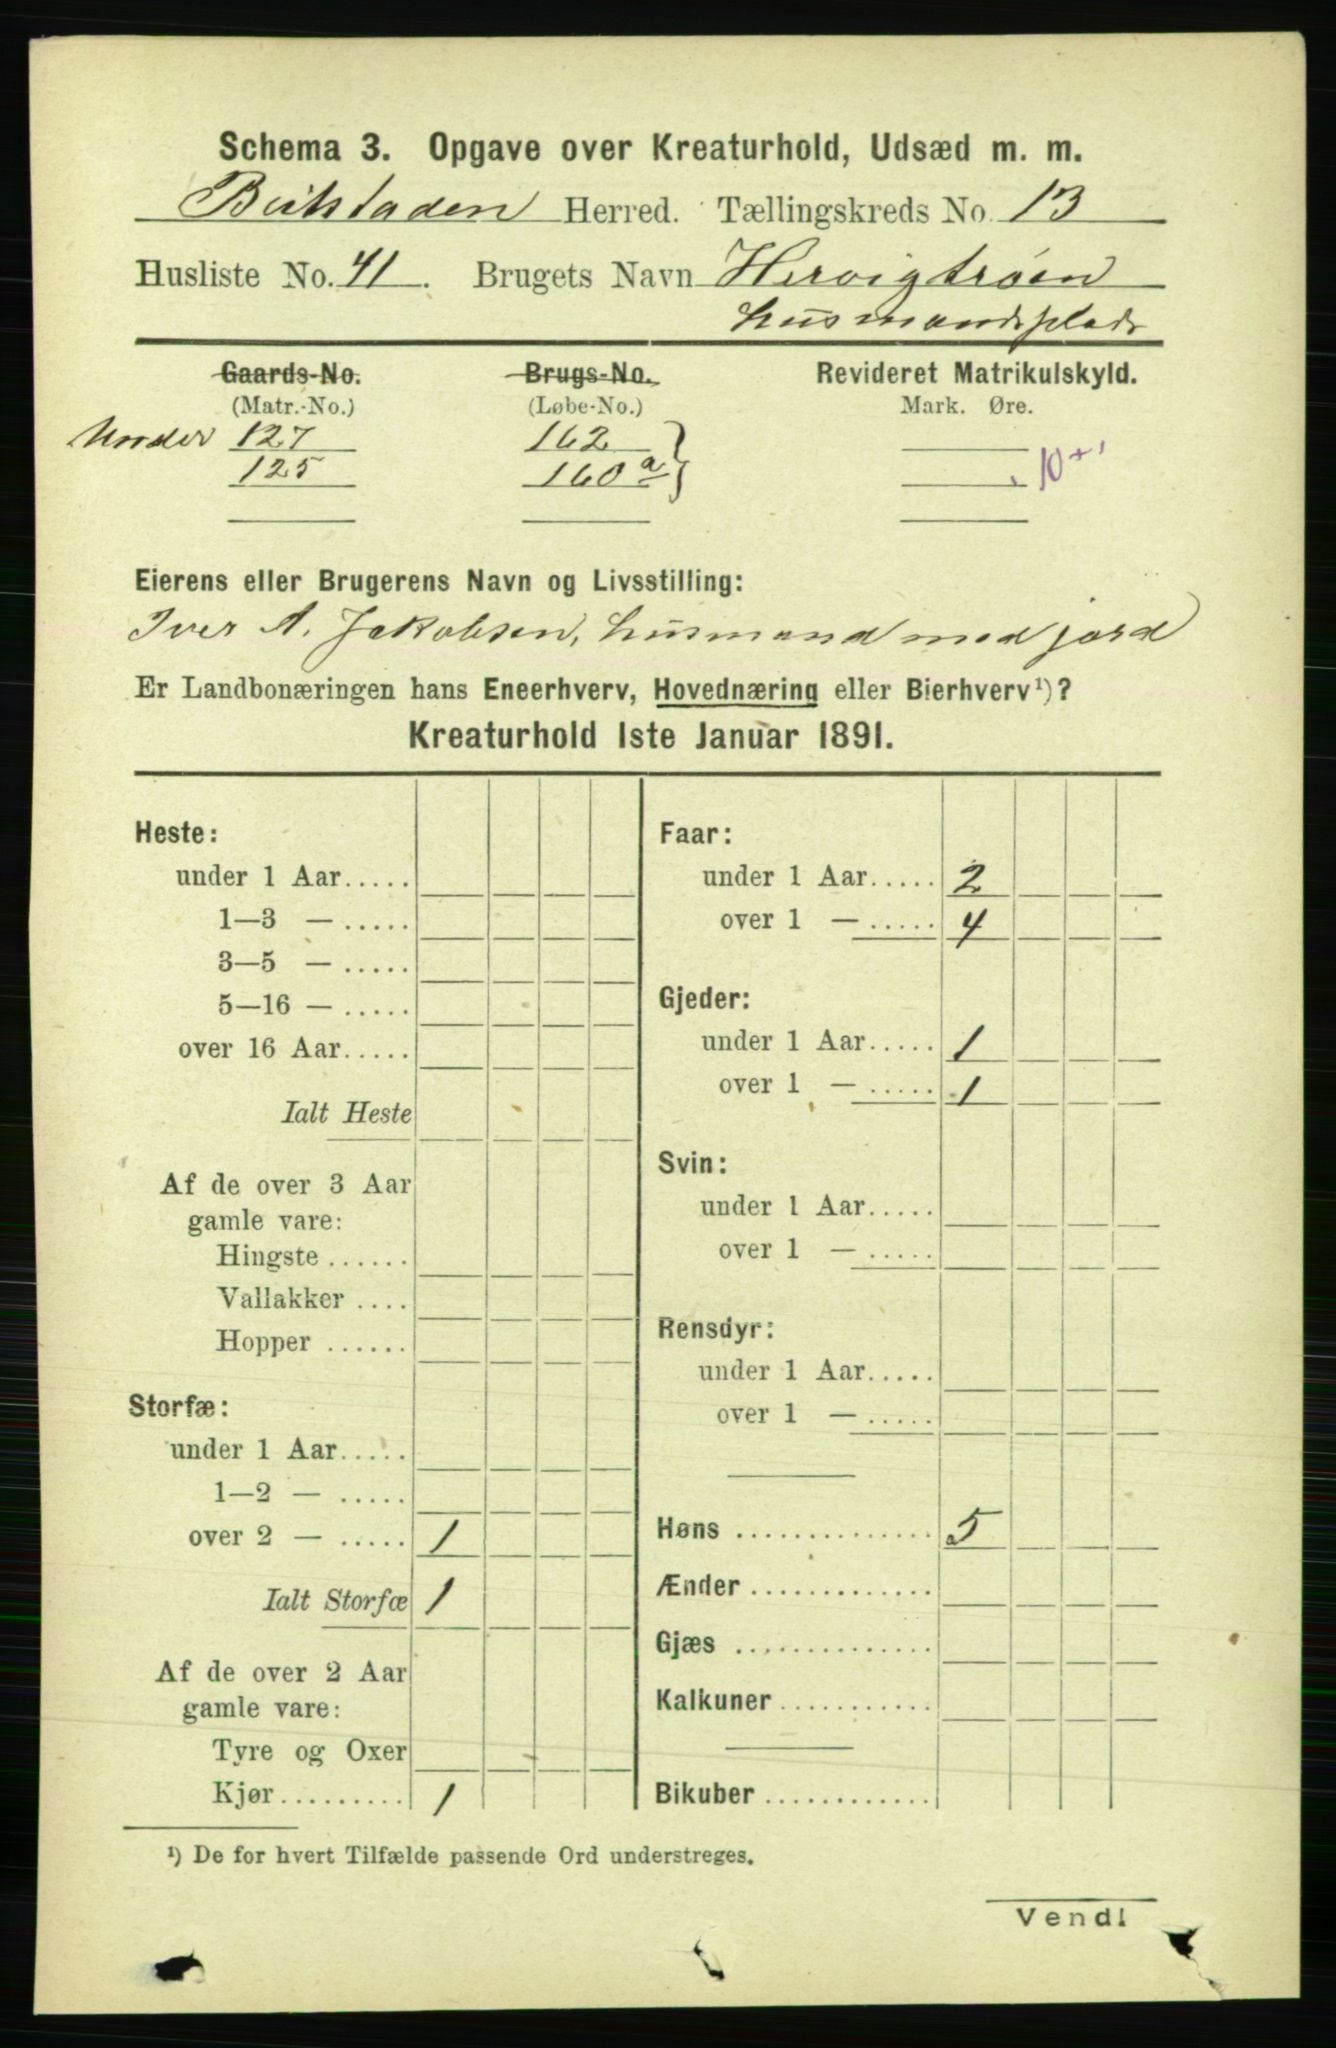 Schema 3. Opgave over Kreaturhold, Udsæd m. m.
Beitstaden Herred. Tællingskreds No. 13
Husliste No. 41. Brugets Navn Hervigtrøen
husmandsplads
Gaards-No. Brugs-No. Revideret Matrikulskyld.
(Matr.-No.) (Løbe-No.) Mark. Øre.
Under 127 162
125 160a 10+
Eierens eller Brugerens Navn og Livsstilling:
Iver A. Jakobsen, husmand med jord
Er Landbonæringen hans Eneerhverv, Hovednæring eller Bierhverv¹)?
Kreaturhold 1ste Januar 1891.
Heste:
under 1 Aar.....
1—3 — .....
3—5 — .....
5—16 — .....
over 16 Aar.....
Ialt Heste
Af de over 3 Aar
gamle vare:
Hingste ......
Vallakker ....
Hopper ......
Storfæ:
under 1 Aar.....
1—2 — .....
over 2 — ..... 1
Ialt Storfæ 1
Af de over 2 Aar
gamle vare:
Tyre og Oxer
Kjør......... 1
Faar:
under 1 Aar..... 2
over 1 — ..... 4
Gjeder:
under 1 Aar..... 1
over 1 — ..... 1
Svin:
under 1 Aar.....
over 1 — .....
Rensdyr:
under 1 Aar.....
over 1 — .....
Høns .............. 5
Ænder .............
Gjæs ..............
Kalkuner ...........
Bikuber ............
¹) De for hvert Tilfælde passende Ord understreges.
Vend!